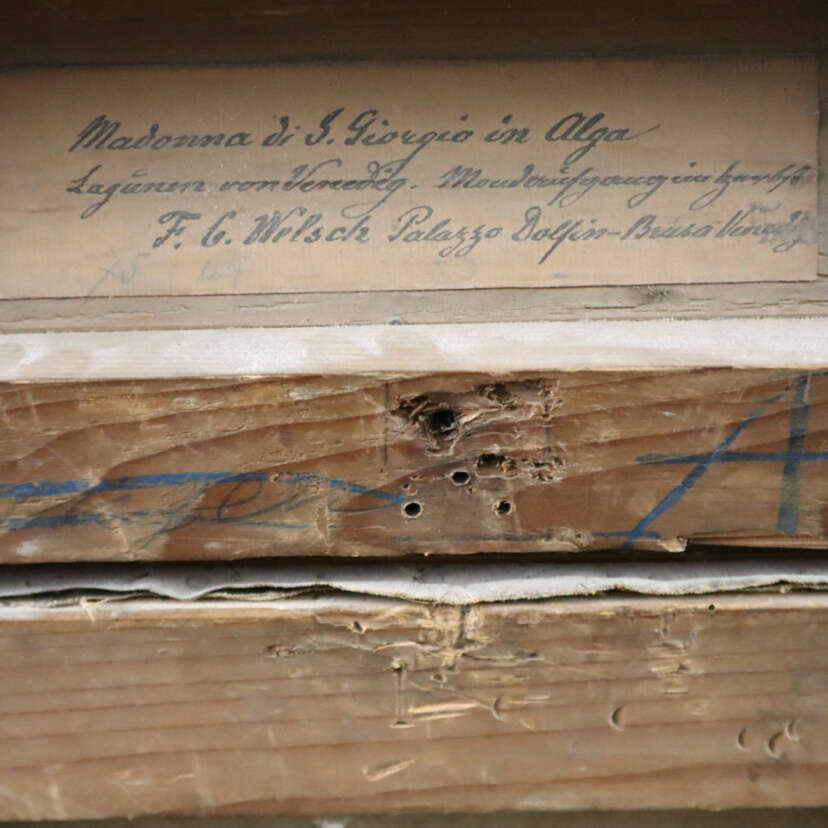 Madonna di S. Giorgio in Alga
Lagunen von Venedig. Mondaufgang im Herbst
F. C. Welsch Palazzo Dolfin-Brusa Venedig
75
A